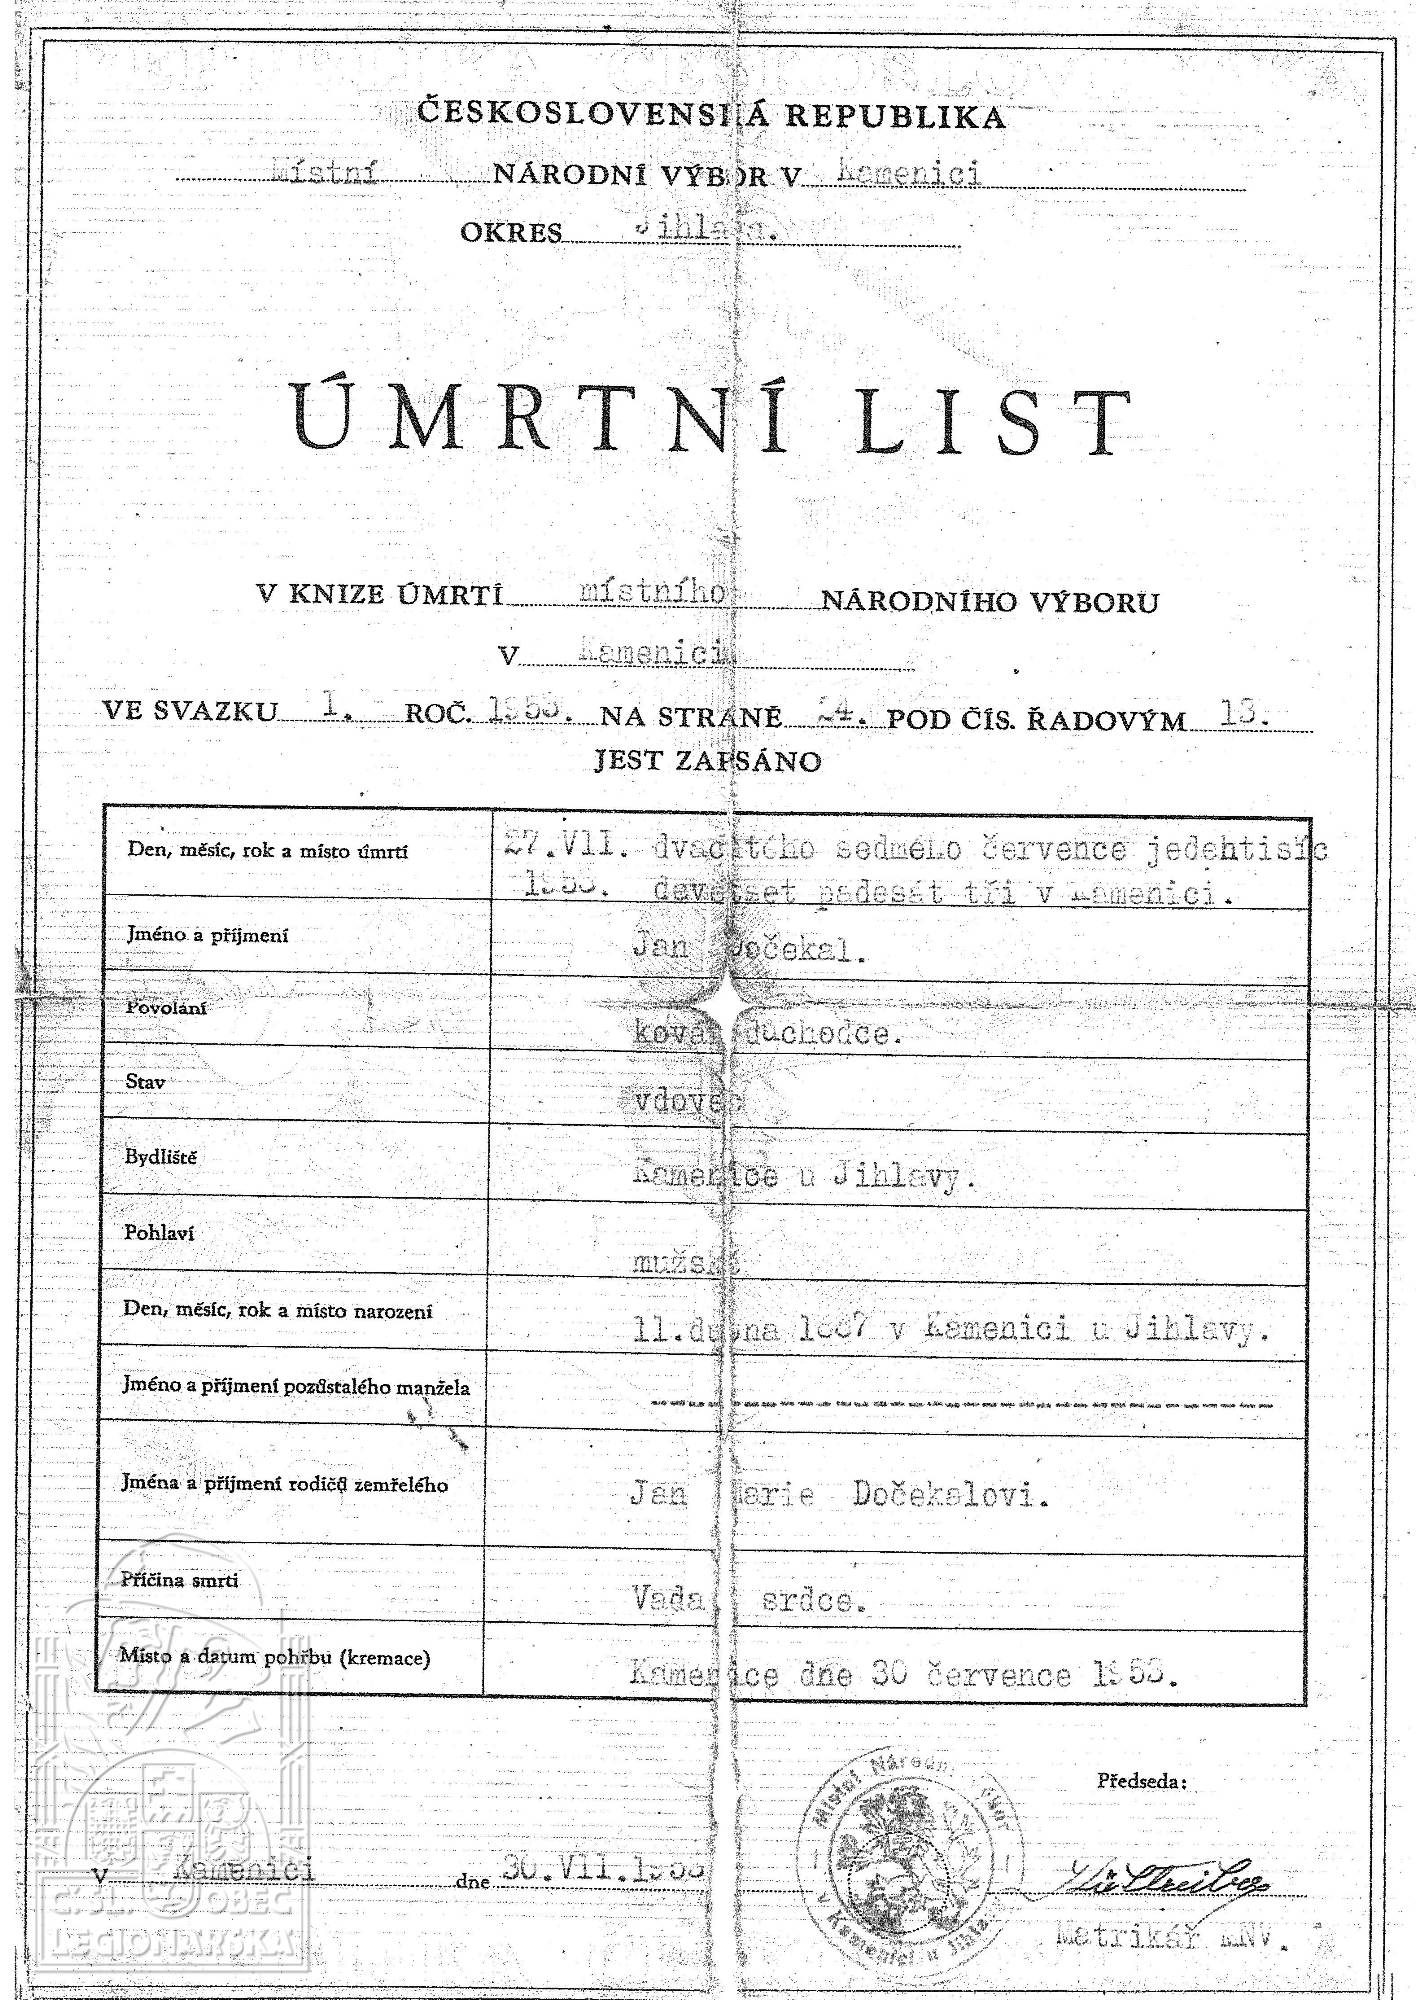 ČESKOSLOVENSKÁ REPUBLIKA
Místní NÁRODNÍ VÝBOR V Kamenici
OKRES Jihlava.
ÚMRTNÍ LIST
V KNIZE ÚMRTÍ místního NÁRODNÍHO VÝBORU
V Kamenici
VE SVAZKU 1. ROČ. 1953. NA STRANĚ 24. POD ČÍS. ŘADOVÝM 13.
JEST ZAPSÁNO
Den, měsíc, rok a místo úmrtí 27.VII. dvacátého sedmého července jedentisíc
1953. devětset padesát tři v Kamenici.
Jméno a příjmení Jan Dočekal.
Povolání kovář důchodce.
Stav vdovec
Bydliště Kamenice u Jihlavy.
Pohlaví mužské
Den, měsíc, rok a místo narození 11.dubna 1887 v Kamenici u Jihlavy.
Jméno a příjmení pozůstalého manžela
Jména a příjmení rodičů zemřelého Jan Marie Dočekalovi.
Příčina smrti Vada srdce.
Místo a datum pohřbu (kremace) Kamenice dne 30 července 1953.
Předseda:
Místní Národní výbor
v Kamenici u Jihlavy
V Kamenici dne 30.VII.1953
Matrikář MNV.
Č.SL. OBEC
LEGIONÁŘSKÁ